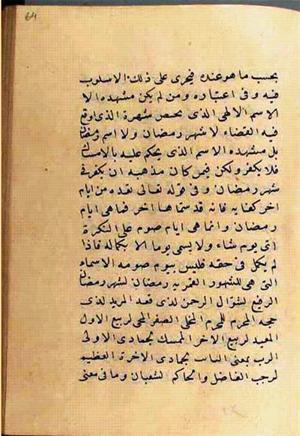 64
بحسب ما هو عنده فيجرى على ذلك الاسلوب
فيه وفى اعتباره ومن لم يكن مشهده الا
الاسم الالهى الذى يخص شهرة الذى وقع
فيه القضاء لا شهر رمضان ولا اسم رمضان
بل مشهده الاسم الذى يحكم عليه بالامساك
فلا يكفر ولكن يتحر كان مذهبه ان يكفر فى
شهر رمضان و فى قوله تعالى فعدة من ايام
اخر كفاية فانه قد سماها اخر فما هى ايام
رمضان وانما هى ايام صوم على النكرة
اى يوم شاء ولا يسمى يوما الا بكماله فاذا
لم يكمل فى حقه فليس بيوم صومه الاسماء
التى هى للشهور القمرية رمضان لشهر رمضان
الرفيع لشوال الرحمن لذى قعد المريد لذى
حجه المحرم للمحرم المخلى لصفر المحيى لربيع الاول
المعيد لربيع الاخر الممسك لجمادى الاولى
الرب بمعنى الثابت لجمادى الاخرة العظيم
لرجب الفاضل والحاكم لشعبان وما فى معنى